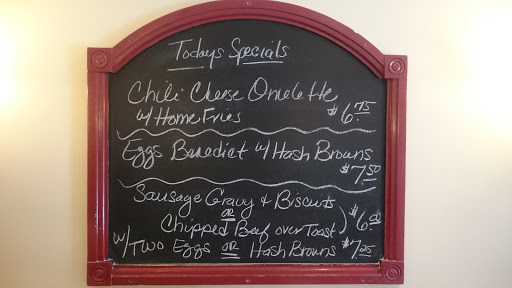 Todays Specials
Chili Cheese Omelette
w/ Home Fries $6.75
Eggs Benedict w/ Hash Browns
$7.50
Sausage Gravy & Biscuits
OR $6.00
Chipped Beef over Toast
w/ Two Eggs OR Hash Browns $7.25